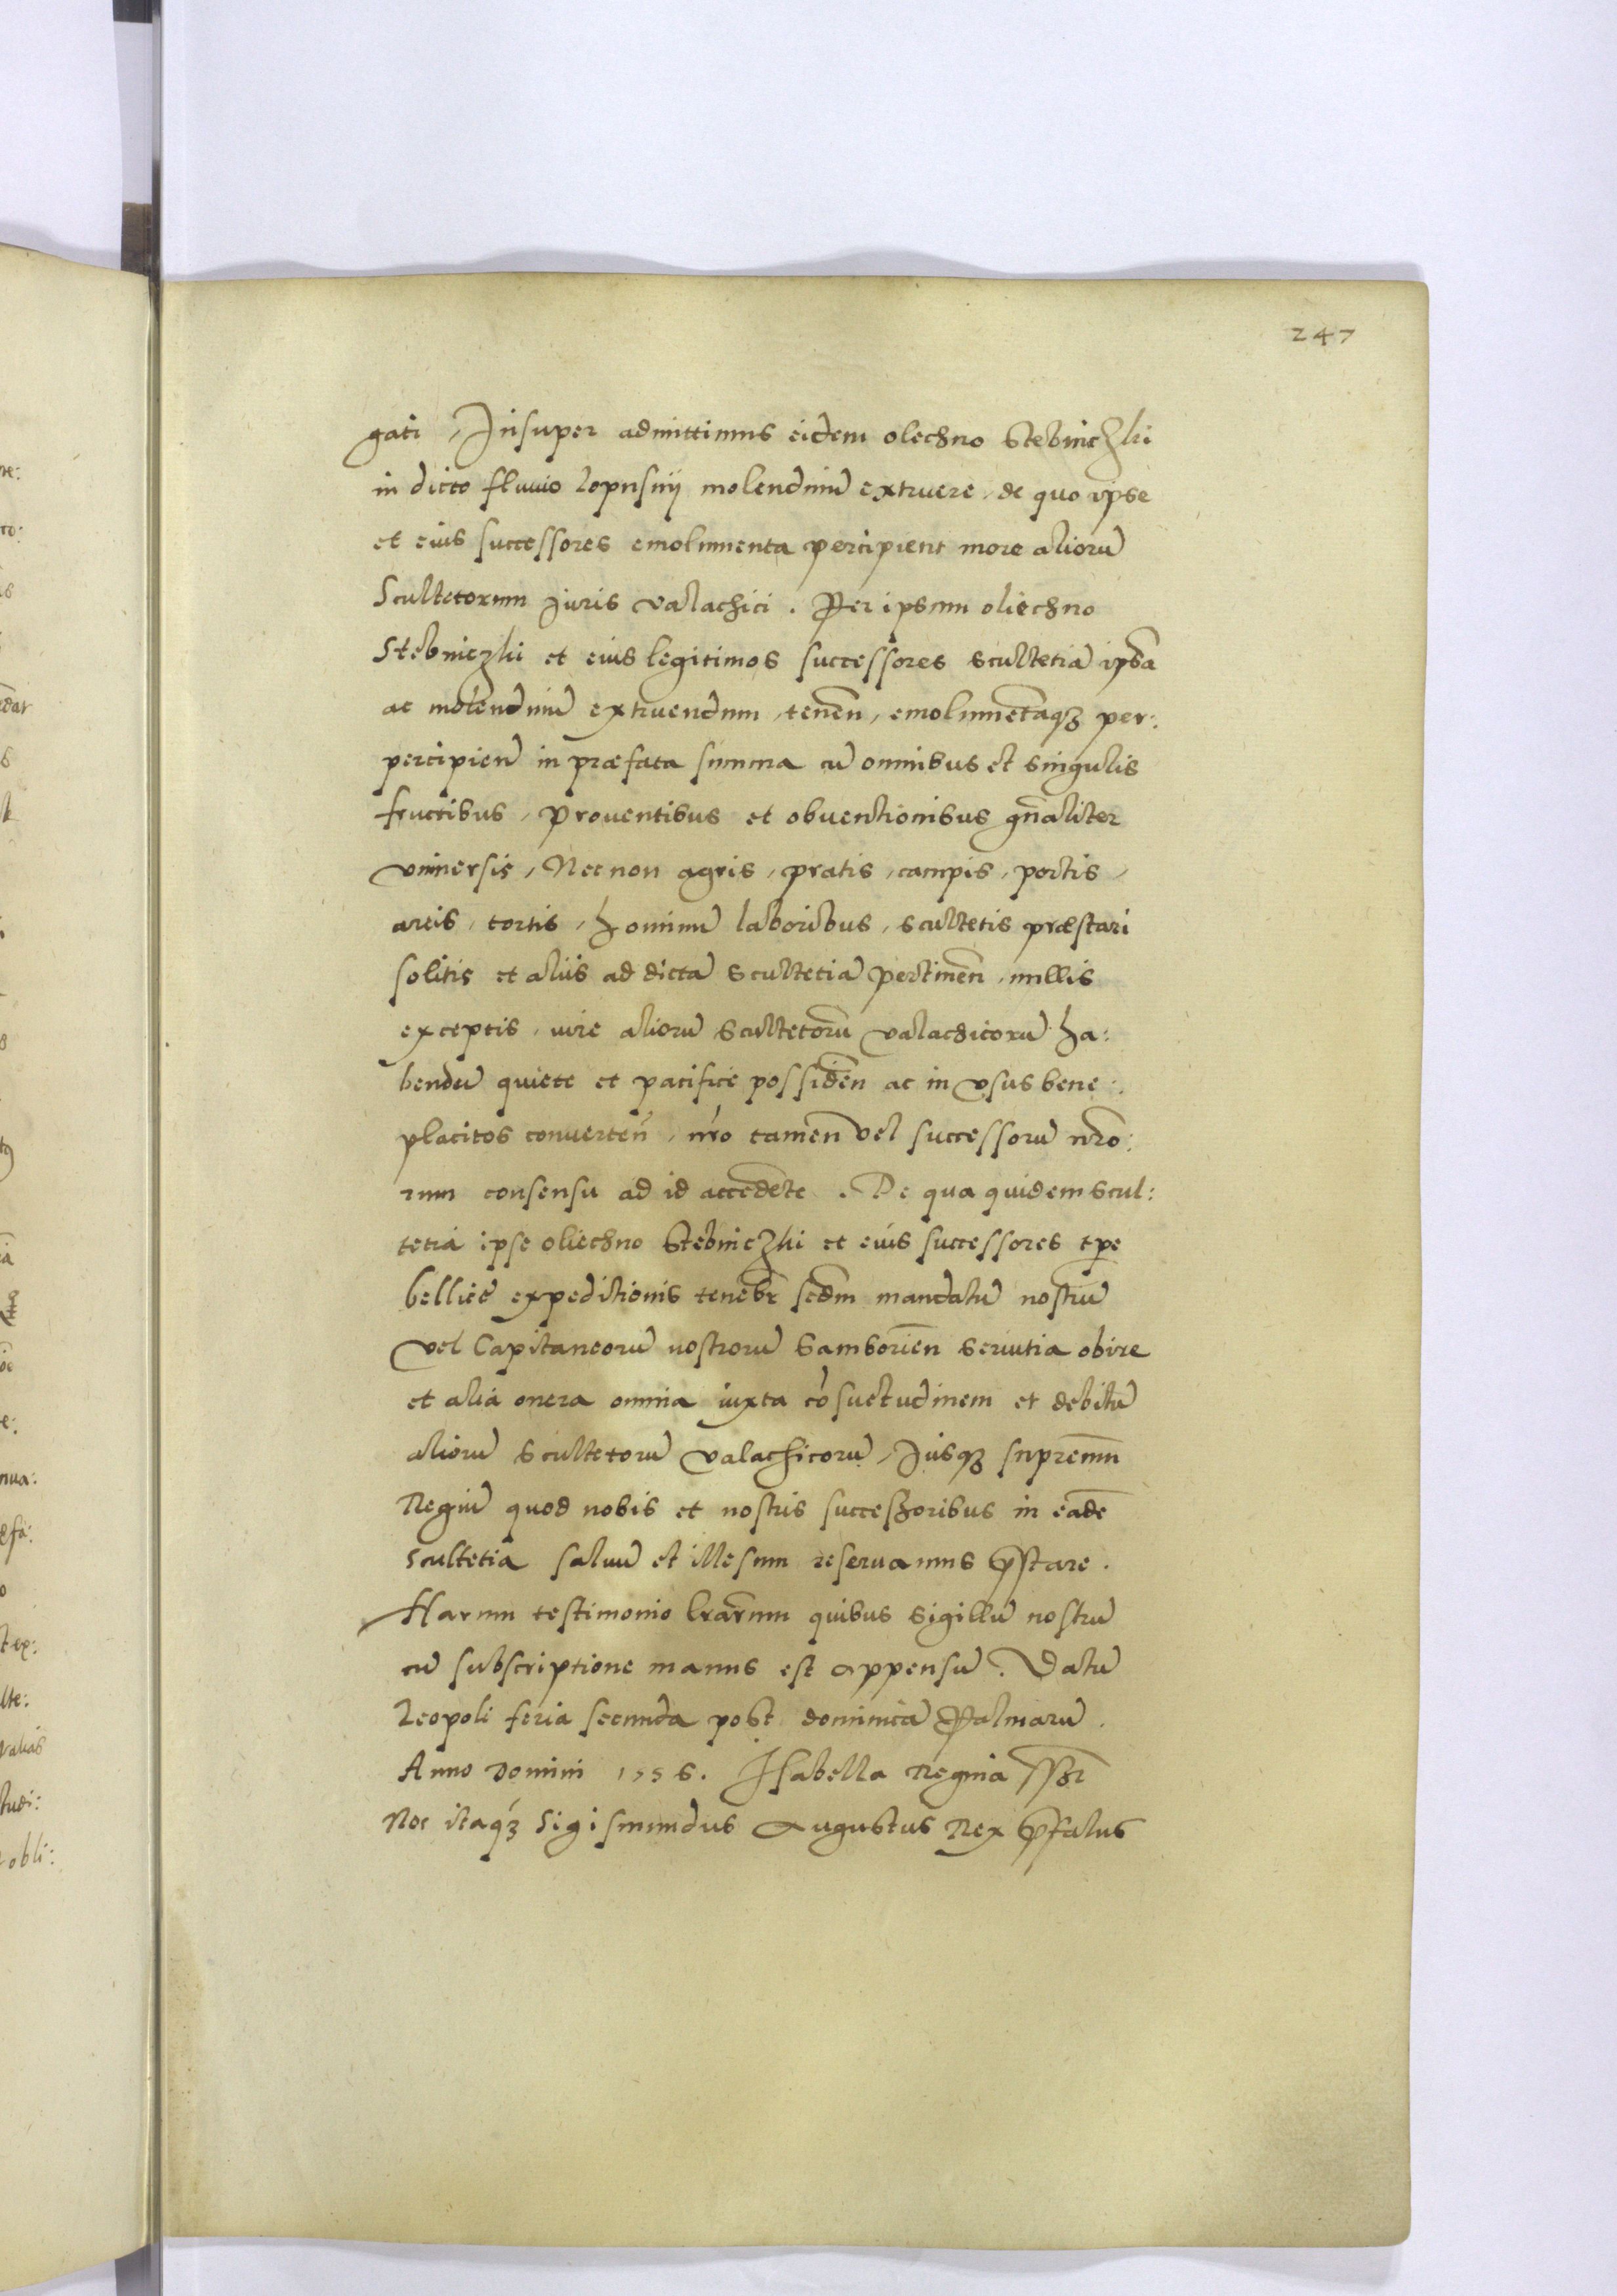 247
gati, Insuper admittimus eidem olechno Stebniczki
in dicto fluvio Lopusnij molendinū extruere, de quo ipse
et eius successores emolumenta percipient more aliorū
Scultetorum Juris valachici. Per ipsum oliechno
Stebniczki et eius legitimos successores scultetiā ipsā
ac molendinū extruendum, tenen̄, emolumēt̄aqꝫ per:
percipien̄ in præfata summa cū omnibus et singulis
fructibus, proventibus et obventionibus gn̄aliter
vniuersis, Nec non agris, pratis, campis, portis,
areis, tortis, hominū laboribus, scultetis præstari
solitis et aliis ad dictā scultetiā pertinen̄, nullis
exceptis, iure aliorū scultetorū valachicorū ha:
bendū quiete et pacifice possiden̄ ac in vsus bene:
placitos converten̄, nr̄o tamen vel successorū nr̄o:
rum consensu ad id accedēte. De qua quidem scul:
tetia ipse oliechno Stebniczki et eius successores tp̄e
bellice expeditionis tenebr̄ scdm̄ mandatū nostrū
vel Capitaneorū nostrorū Samborien̄ seruitia obire
et alia onera omnia iuxta cōsuetudinem et debitū
aliorū scultetorū valachicorū, Jusqꝫ supremm̄
Regiū quod nobis et nostris successoribus in eadē
scultetia saluū et illesum reseruamus p̄stare.
Harum testimonio lr̄arum quibus sigillū nostrū
cū subscriptione manus est appensū. Datū
Leopoli feria secunda post dominicā Palmarū.
Anno Domini 1556. Isabella Regina sszt̄
Nos itaqꝫ Sigismundus Augustus Rex p̄fatus